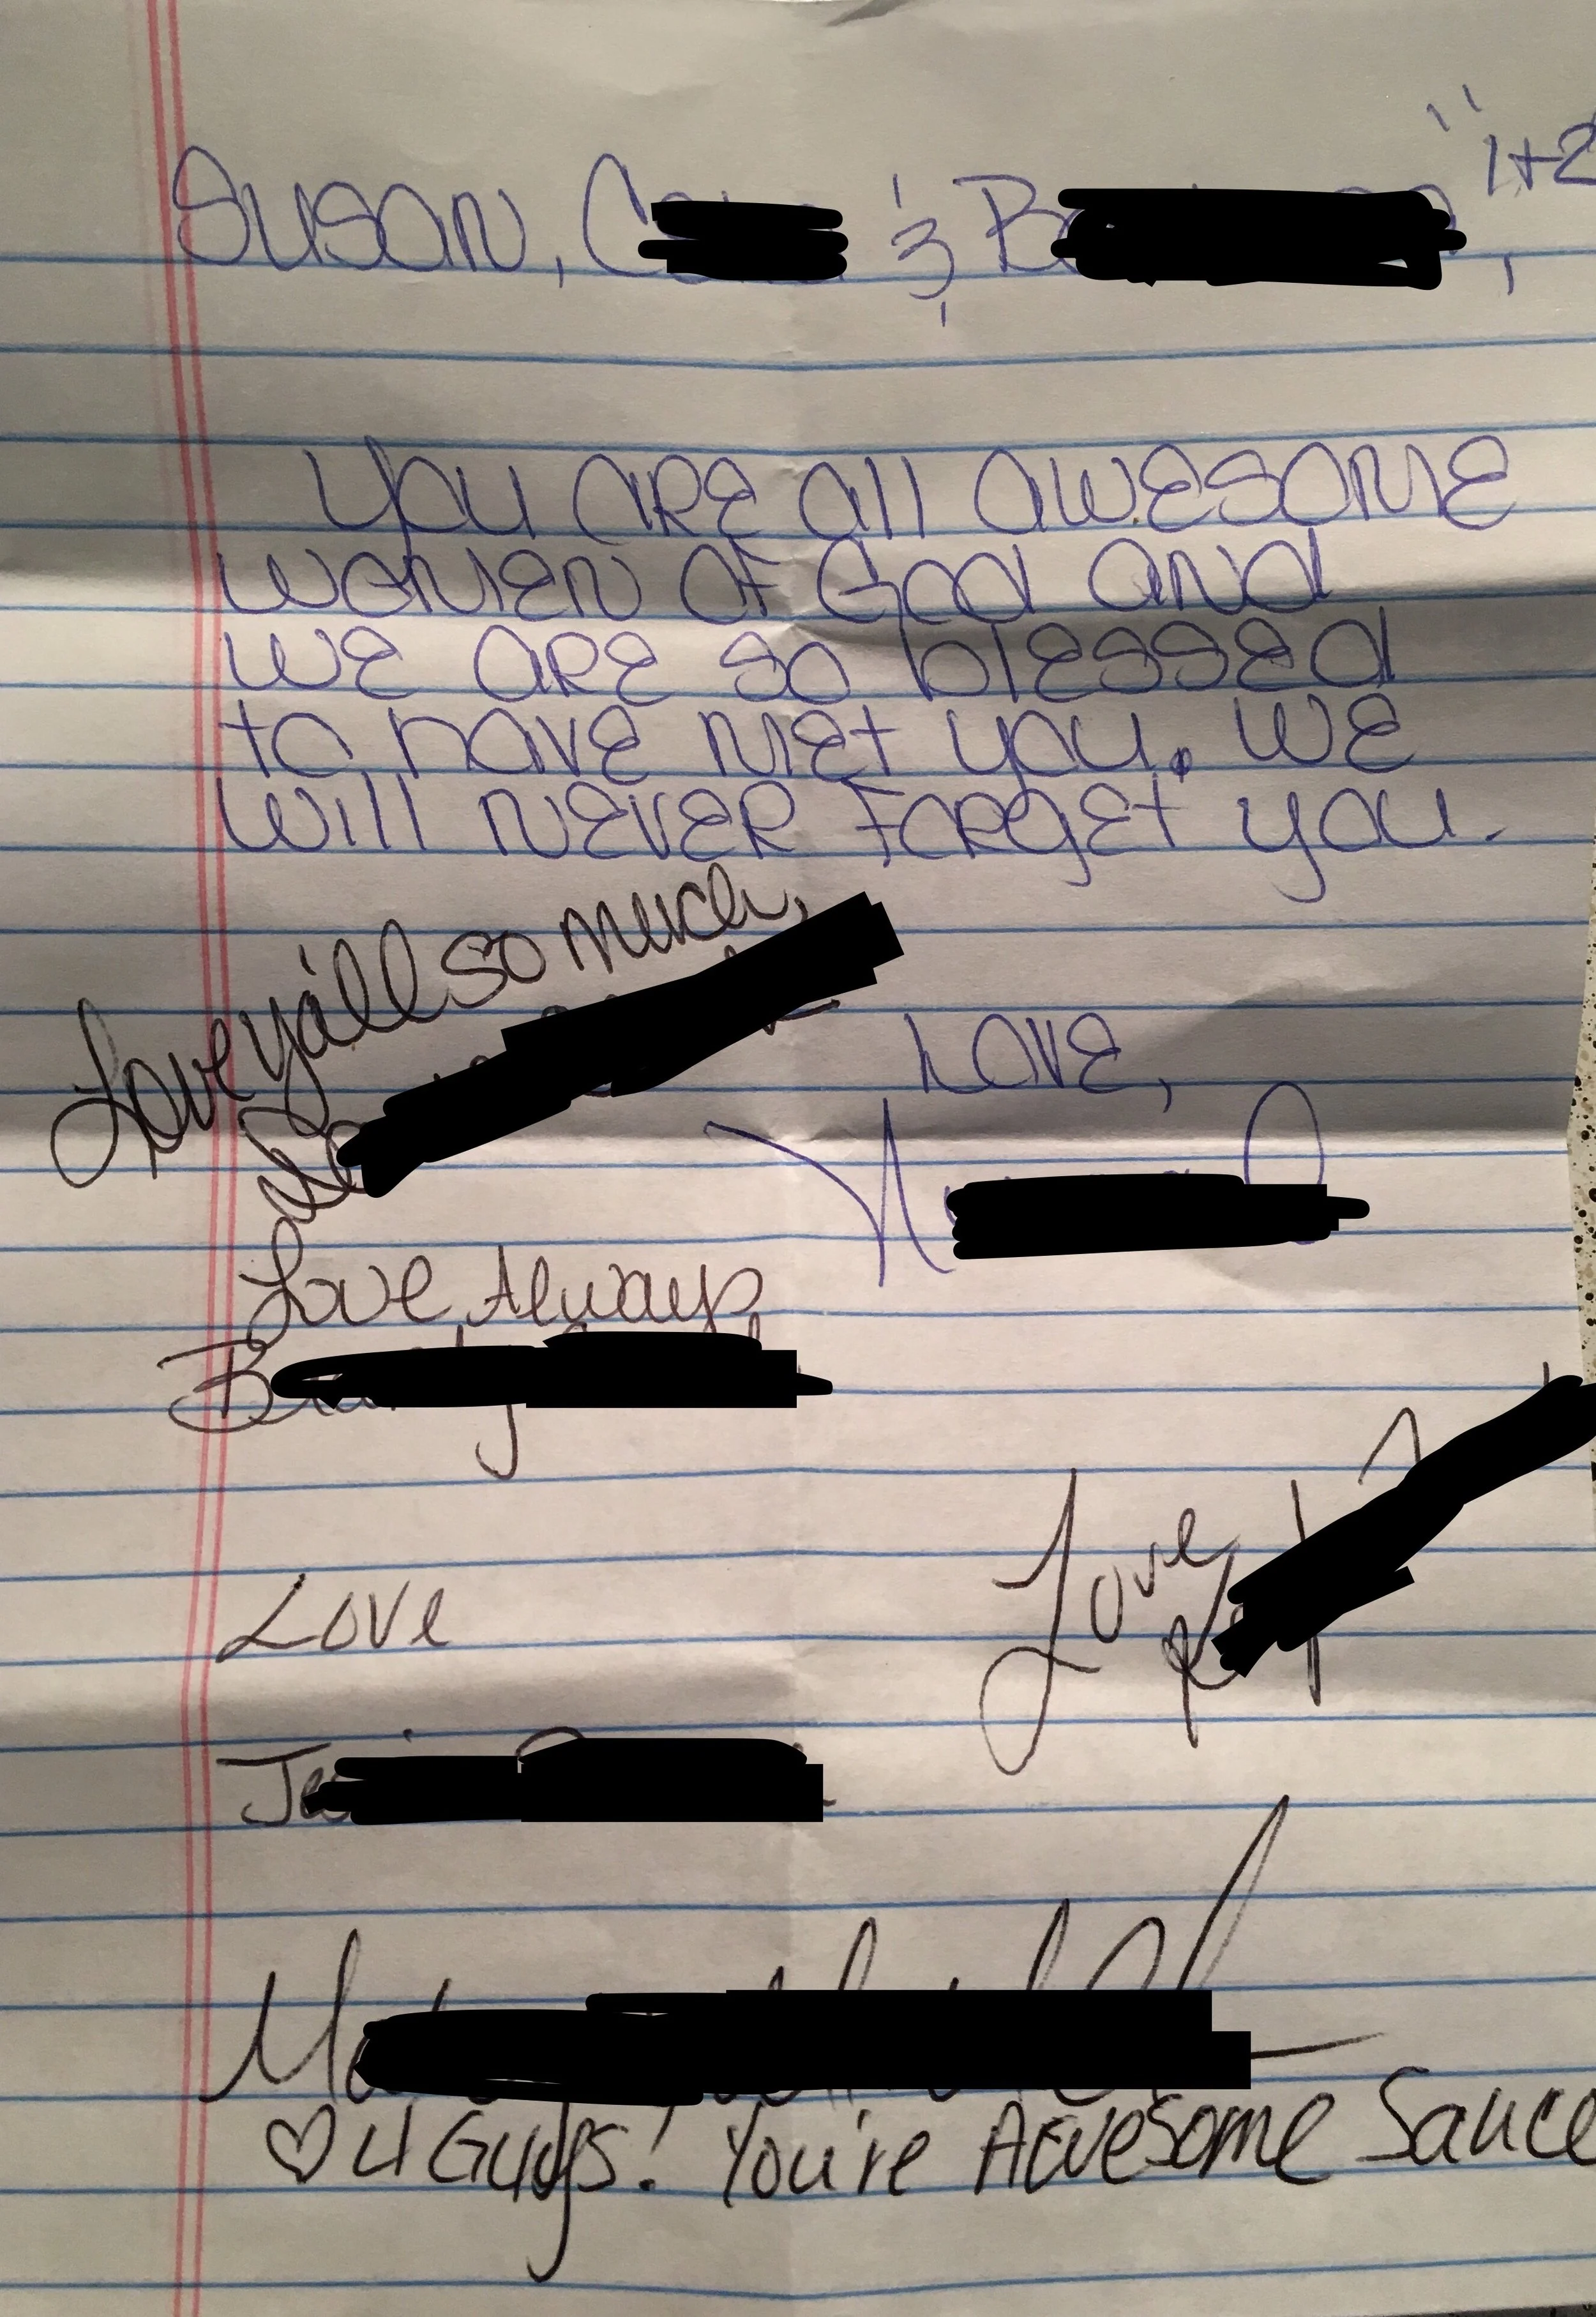 Susan, & "1+2
,
You are all awesome
women of God and
we are so blessed
to have met you. We
will never forget you.
Love y'all so much,
Love,
Love, Always,
Love
Love
♡ U Guys! You're Awesome Sauce